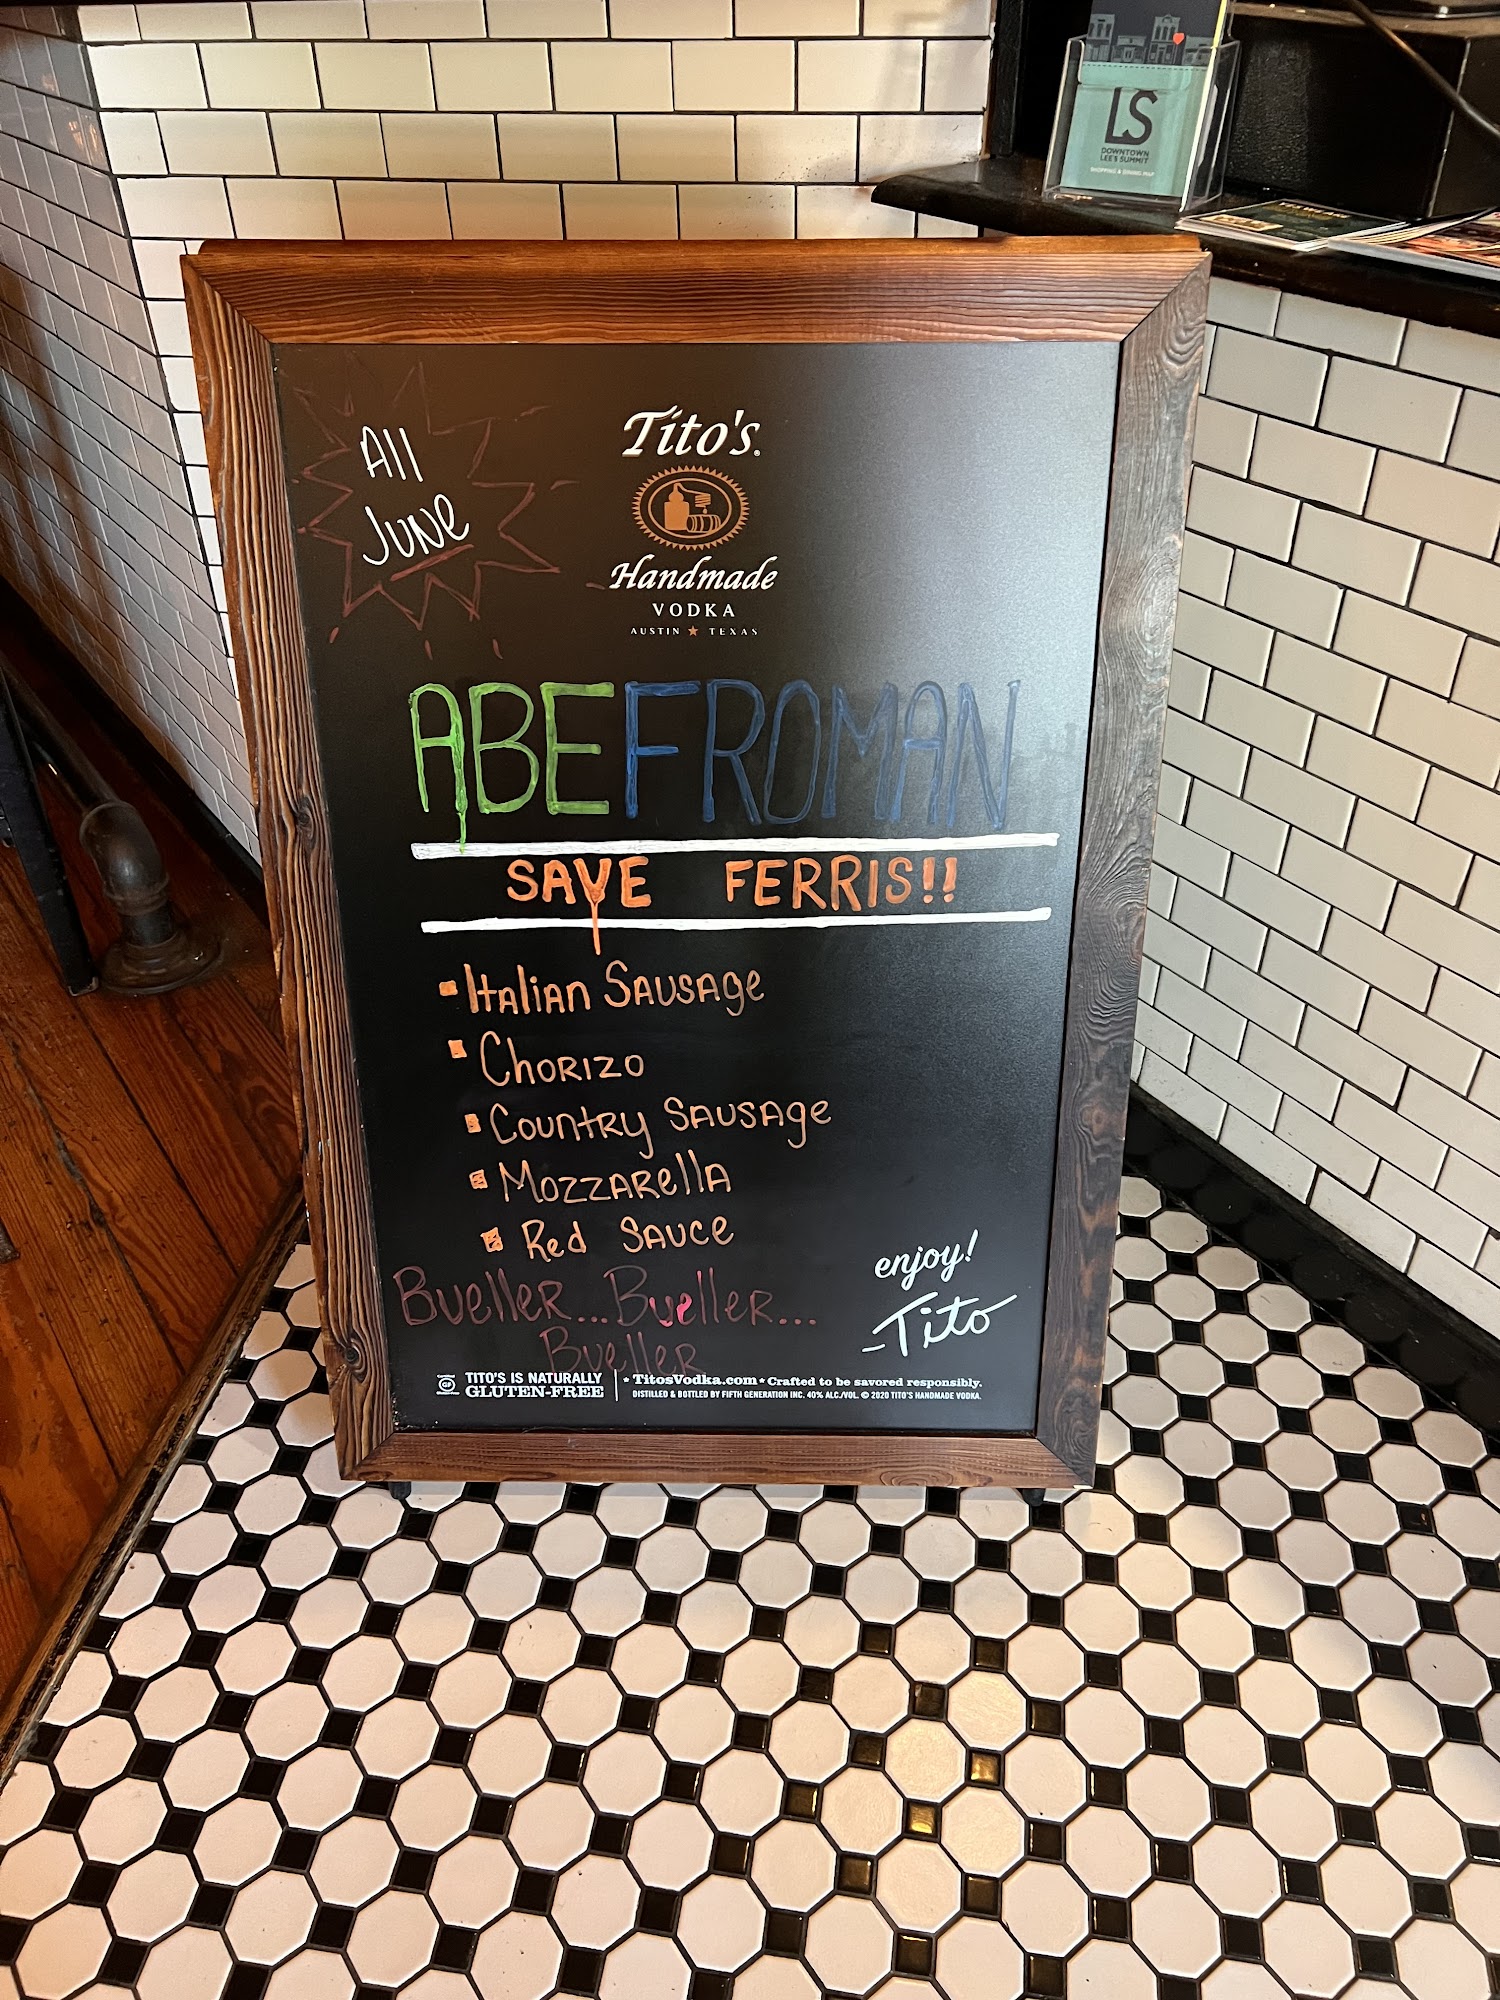 LS
DOWNTOWN
LEE'S SUMMIT
SHOPPING & DINING MAP
All
June
Tito's
Handmade
VODKA
AUSTIN ★ TEXAS
ABE FROMAN
SAVE FERRIS!!
▪ Italian Sausage
▪ Chorizo
▪ Country Sausage
▪ Mozzarella
▪ Red Sauce
Bueller... Bueller...
Bueller
enjoy!
-Tito
GF
TITO'S IS NATURALLY
GLUTEN-FREE
★ TitosVodka.com ★ Crafted to be savored responsibly.
DISTILLED & BOTTLED BY FIFTH GENERATION INC. 40% ALC./VOL. © 2020 TITO'S HANDMADE VODKA.